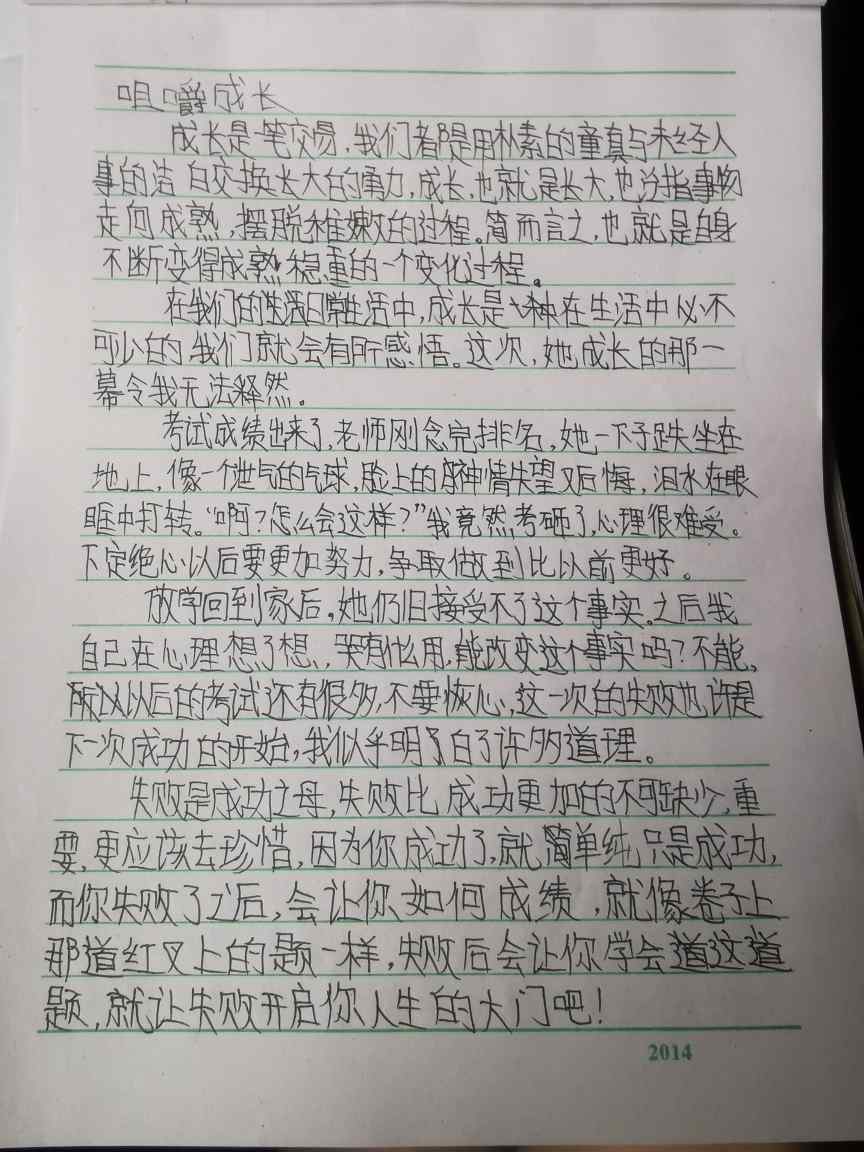 咀嚼成长
成长是一笔交易，我们都是用朴素的童真与未经人
事的洁白交换长大的勇力，成长，也就是长大，也泛指事物
走向成熟，摆脱稚嫩的过程。简而言之，也就是自身
不断变得成熟稳重的一个变化过程。
在我们的日常生活中，成长是一种在生活中必不
可少的我们就会有所感悟。这次，她成长的那一
幕令我无法释然。
考试成绩出来了，老师刚念完排名，她一下子跌坐在
地上，像一个泄气的气球，脸上的神情失望又后悔，泪水在眼
眶中打转。“啊？怎么会这样？”我竟然考砸了，心理很难受。
下定绝心以后要更加努力，争取做到比以前更好。
放学回到家后，她仍旧接受不了这个事实。之后我
自己在心理想了想，哭有什么用，能改变这个事实吗？不能，
所以以后的考试还有很多，不要恢心，这一次的失败也许是
下一次成功的开始，我似乎明了白了许多道理。
失败是成功之母，失败比成功更加的不可缺少，重
要，更应该去珍惜，因为你成功了，就简单纯只是成功，
而你失败了之后，会让你如何成绩，就像卷子上
那道红叉上的题一样，失败后会让你学会道这道
题，就让失败开启你人生的大门吧！
2014